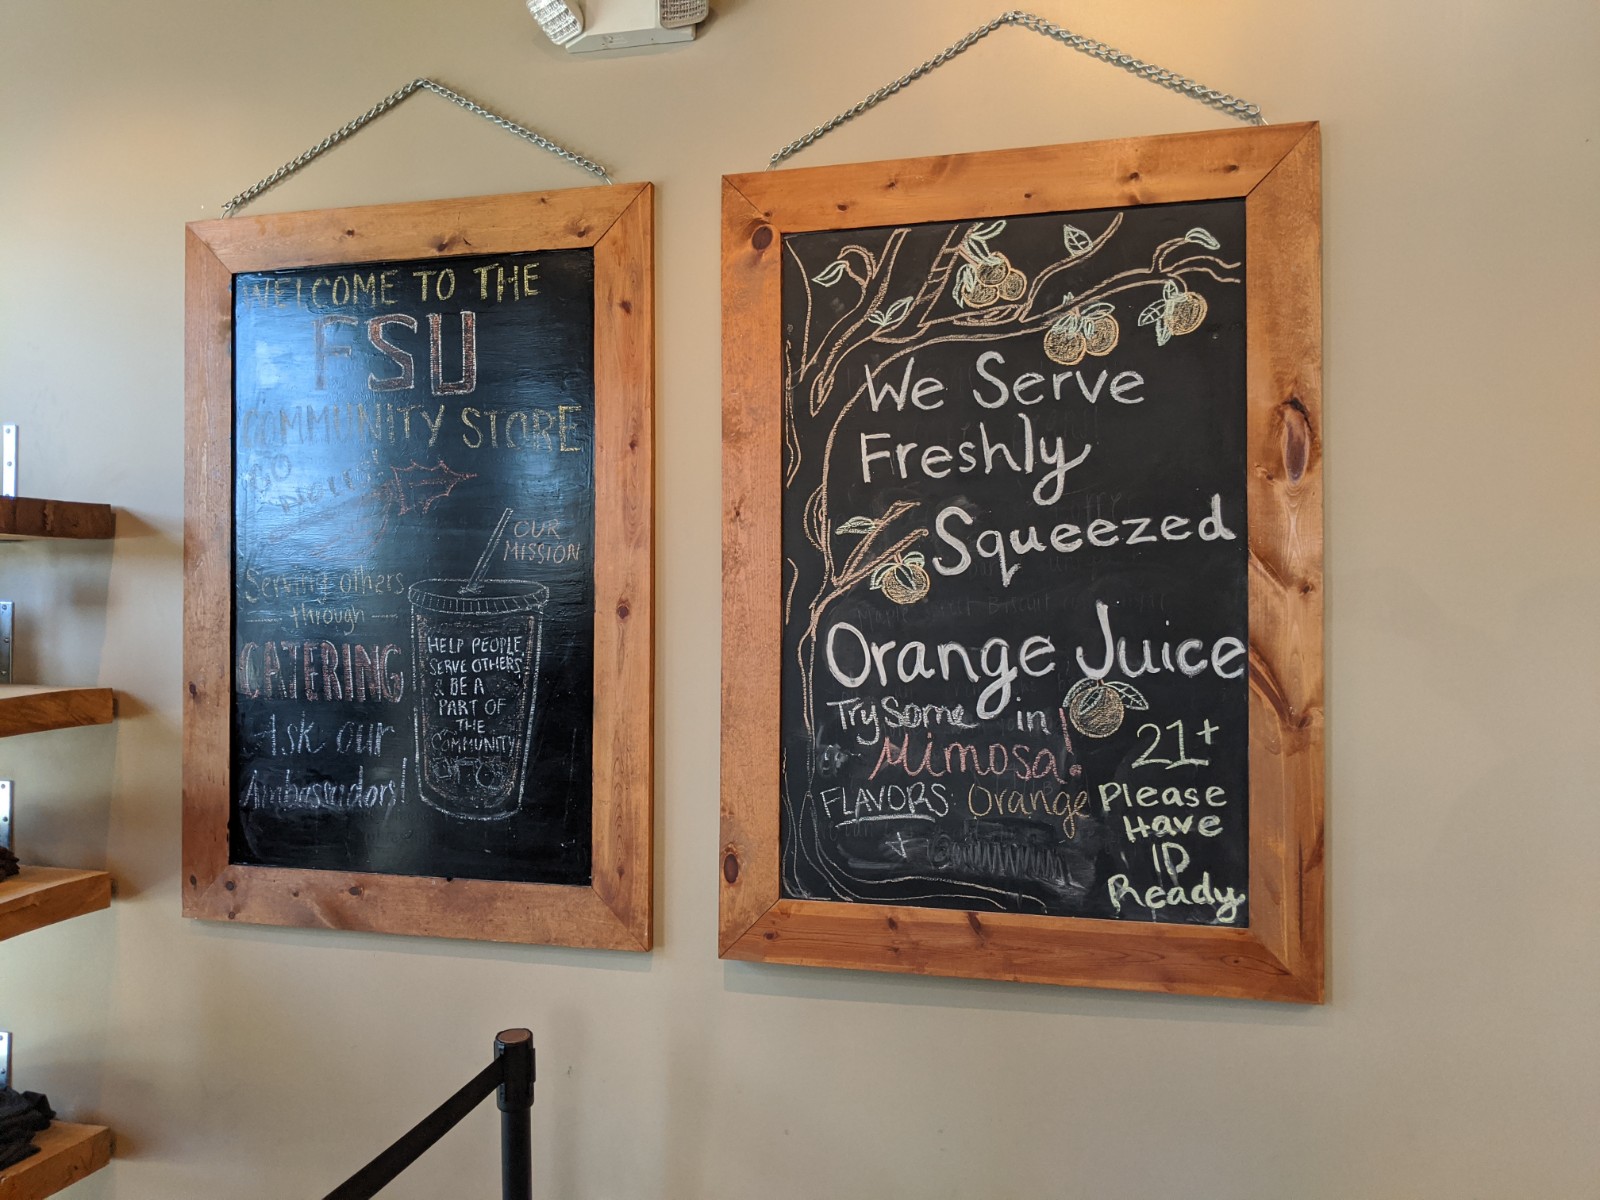 WELCOME TO THE
FSU
COMMUNITY STORE
GO
OUR
MISSION
Serving others
through
CATERING
Ask our
Ambassadors!
HELP PEOPLE,
SERVE OTHERS,
& BE A
PART OF
THE
COMMUNITY
We Serve
Freshly
Squeezed
Orange Juice
Try Some in
Mimosa!
FLAVORS: Orange
+
21+
Please
Have
ID
Ready